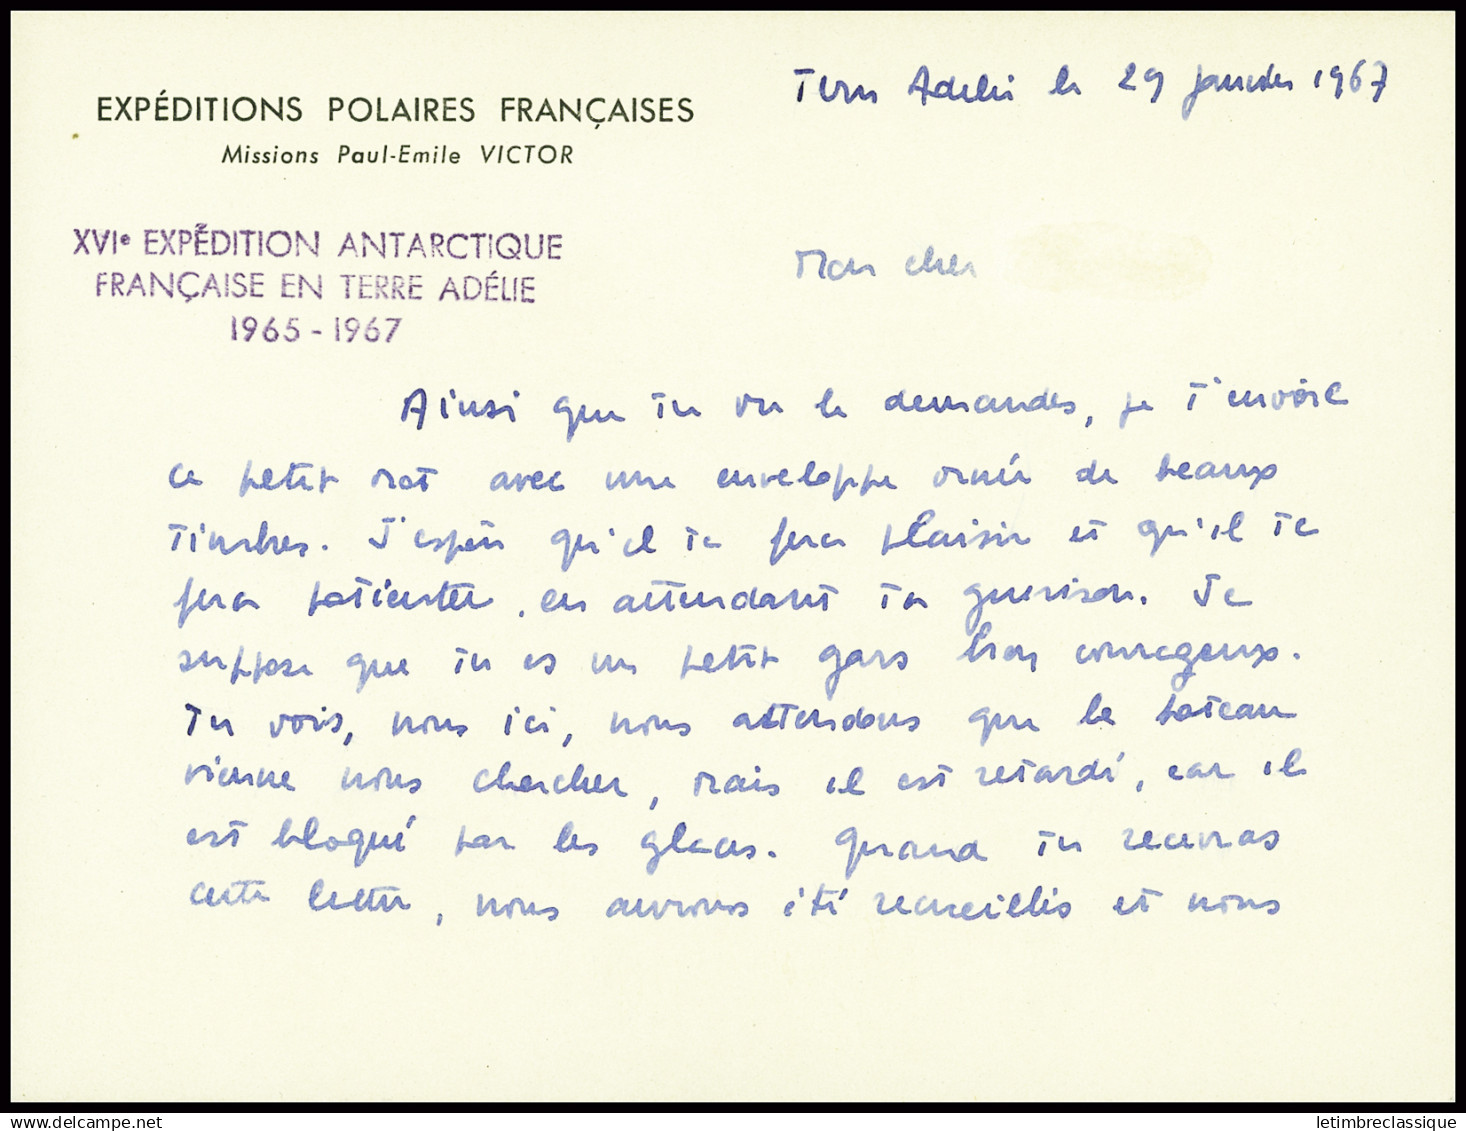 Terre Adélie le 29 janvier 1967
EXPÉDITIONS POLAIRES FRANÇAISES
Missions Paul-Emile VICTOR
XVIe EXPÉDITION ANTARCTIQUE
FRANÇAISE EN TERRE ADÉLIE
1965 - 1967
Mon cher
Ainsi que tu me le demandes, je t'envoie
ce petit mot avec une enveloppe ornée de beaux
timbres. J'espère qu'il te fera plaisir et qu'il te
fera patienter, en attendant ta guérison. Je
suppose que tu es un petit gars bien courageux.
Tu vois, nous ici, nous attendons que le bateau
vienne nous chercher, mais il est retardé, car il
est bloqué par les glaces. Quand tu recevras
cette lettre, nous aurons été recueillis et nous
letimbreclassique